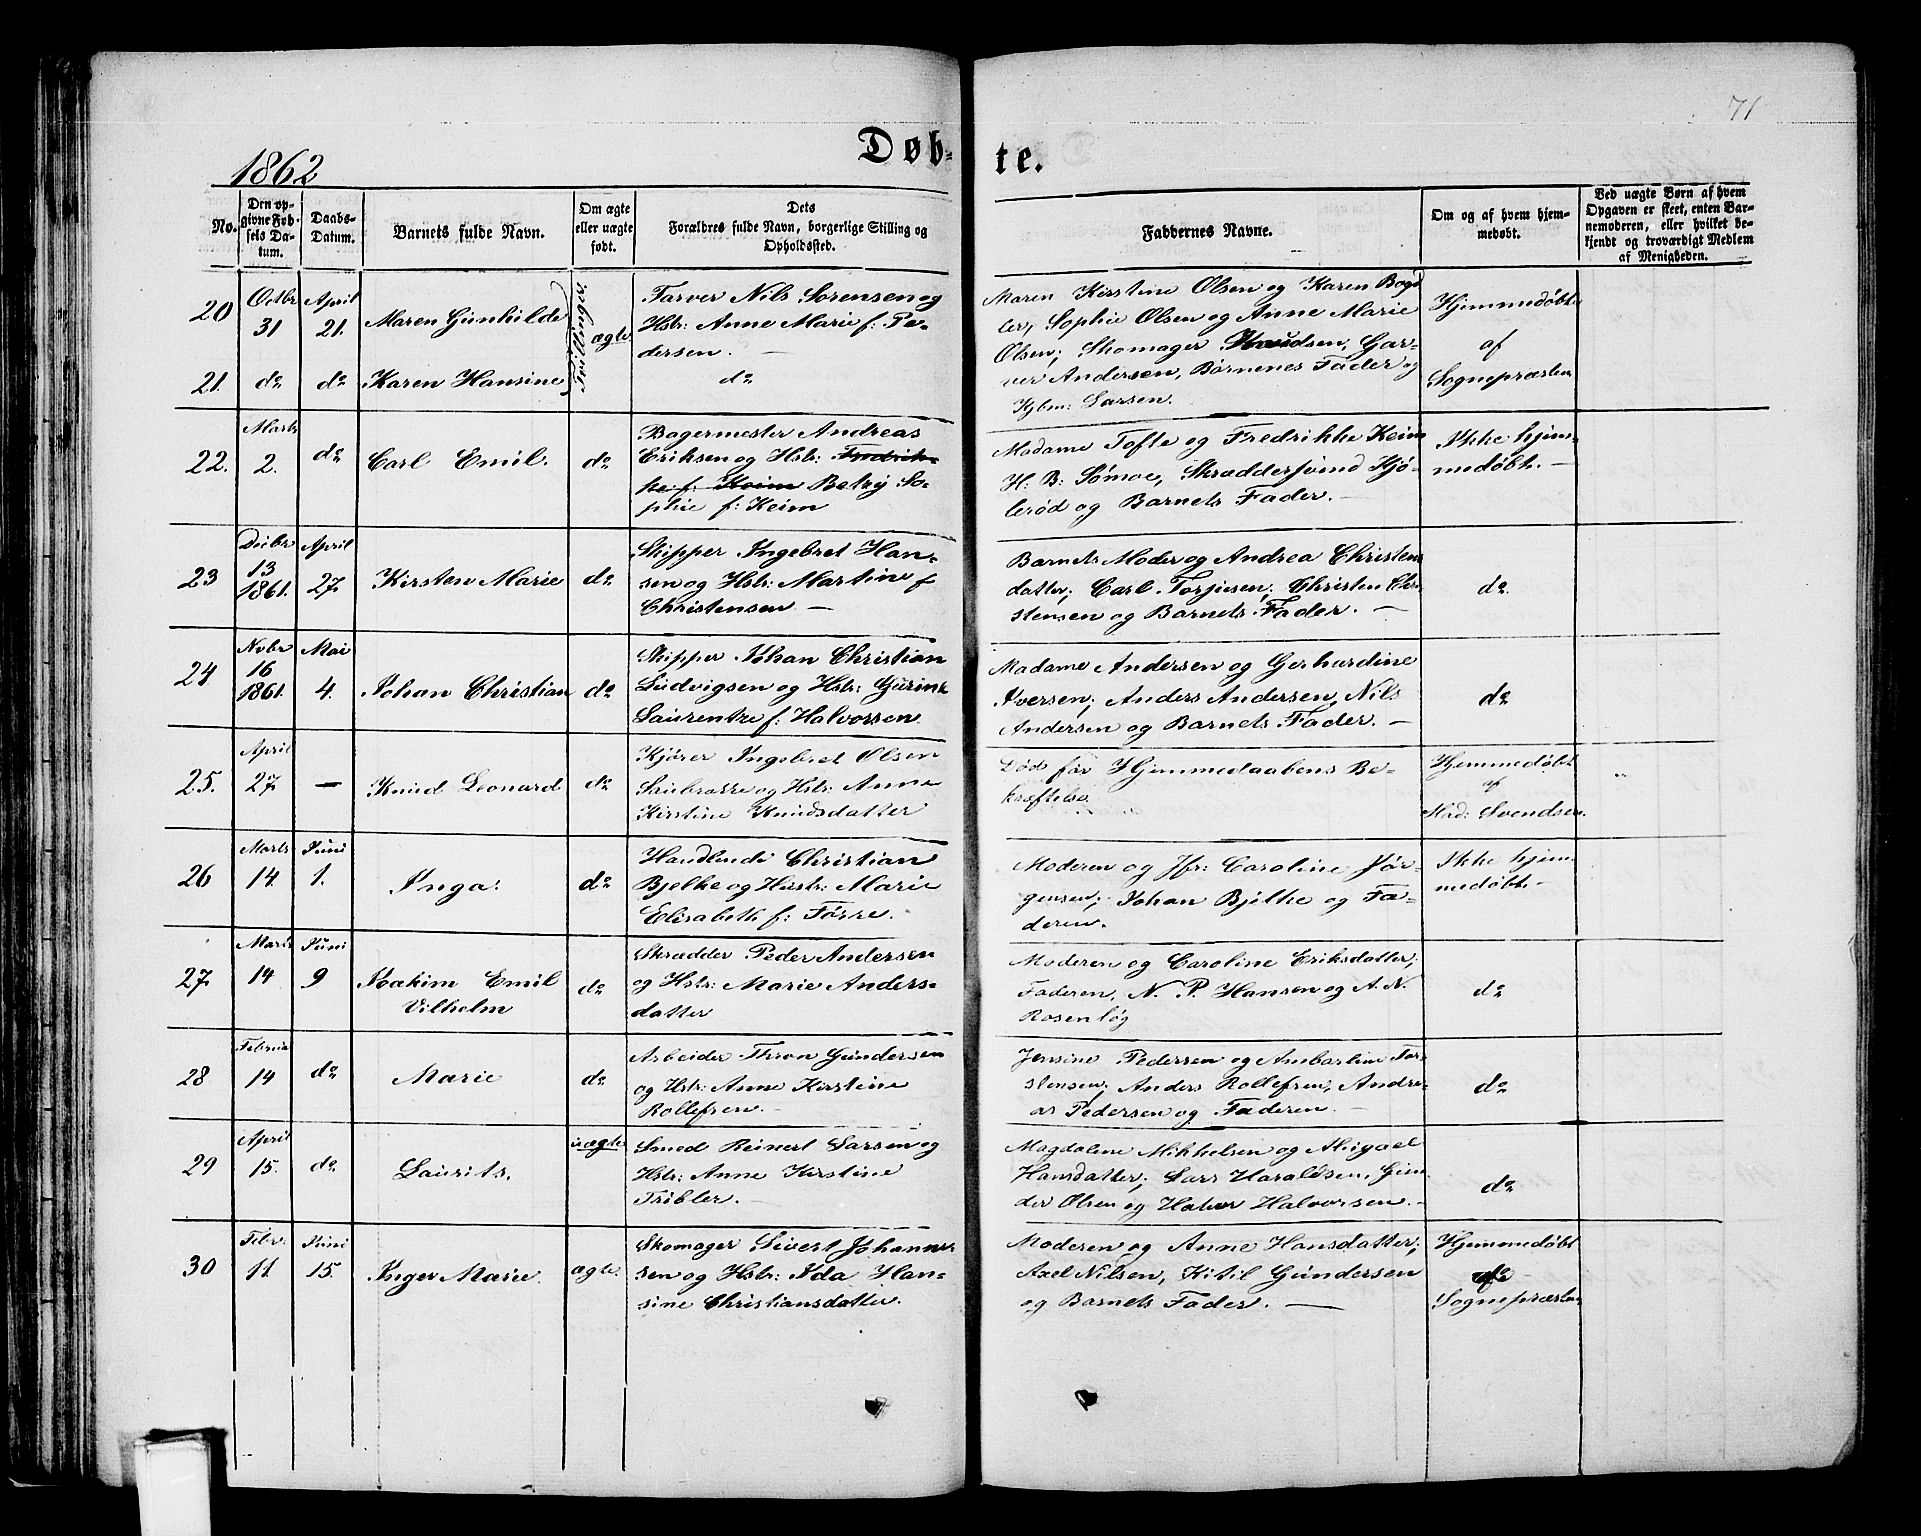 71
1862
Døb-
te.
No.
Den op-
givne Fød-
sels Da-
tum.
Daabs-
Datum.
Barnets fulde Navn.
Om ægte
eller uægte
født.
Dets
Forældres fulde Navn, borgerlige Stilling og
Opholdssted.
Faddernes Navne.
Om og af hvem hjem-
medøbt.
Ved uægte Børn af hvem
Opgaven er skeet, enten Bar-
nemoderen, eller hvilket be-
kjendt og troværdigt Medlem
af Menigheden.
20
Octbr
31
April
21.
Maren Gunhilde
Tvillinger.
ægte
Farver Nils Sorensen og
Hstr: Anne Marie f: Pe-
dersen. —
Maren Kirstine Olsen og Karen Bogd
ler, Sophie Olsen og Anne Marie
Olsen; Skomager Knudsen, Gar-
ver Andersen, Børnenes Fader og
Kjbm: Larsen.
Hjemmedøbt
af
Sognepræsten
21.
do
do
Karen Hansine
do
22.
Marts
2.
do
Carl Emil.
do
Bagermester Andreas
Eriksen og Hstr: Fredrik-
ke f: Keim Betzy So-
phie f: Keim
Madame Tofte og Fredrikke Keim
H: B: Sømoe, Skræddersvend Kjø-
lerød og Barnets Fader. —
Ikke hjem-
medøbt. —
23
Decbr
13
1861.
April
27
Kirsten Marie
do
Skipper Ingebret Han-
sen og Hstr: Martine f
Christensen —
Barnets Moder og Andrea Christens
datter; Carl Torjusen; Christen Chri-
stensen og Barnets Fader. —
do
24
Nvbr
16
1861.
Mai
4.
Johan Christian
do
Skipper Johan Christian
Ludvigsen og Hstr: Gurine
Laurentze f: Halvorsen
Madame Andersen og Gerhardine
Iversen; Anders Andersen, Nils
Andersen og Barnets Fader. —
do
25.
April
27
—
Knud Leonard
do
Kjører Ingebret Olsen
og Hstr: Anne
Kirstine Knudsdatter
Død før Hjemmedaabens Be-
kræftelse
Hjemmedøbt
af
Mad: Svendsen.
"
26
Marts
14.
Juni
1.
Inga.
do
Handlende Christian
Bjelke og Hustr: Marie
Elisabeth f: Førre.
Moderen og Jfr: Caroline Jør-
gensen; Johan Bjelke og Fa-
deren.
Ikke hjem-
medøbt —
27
Marts
14
Juni
9
Joakim Emil
Vilhelm
do
Skrædder Peder Andersen
og Hstr: Marie Anders-
datter
Moderen og Caroline Eriksdatter;
Faderen, N. P. Hansen og A. N.
Rosenløg
do
28
Februar
14
do
Marie
do
Arbeider Thron Gundersen
og Hstr: Anne Kirstine
Rollefsen. —
Jensine Pedersen og Ambartine Tor-
stensen; Anders Rollefsen, Andre-
as Pedersen og Faderen. —
do
29
April
15.
do
Laurits.
uægte
Smed Reinert Larsen og
Hstr: Anne Kirstine
Tribler. —
Magdalene Mikkelsen og Abigael
Hansdatter; Lars Haraldsen, Gun-
der Olsen og Halvor Halvorsen. —
do
30
Febr.
11
Juni
15.
Inger Marie.
ægte.
Skomager Sivert Johannes
sen og Hstr: Ida Han-
sine Christiansdatter.
Moderen og Anne Hansdatter;
Axel Nilsen, Kitil Gundersen
og Barnets Fader. —
Hjemmedøbt
af
Sognepræsten